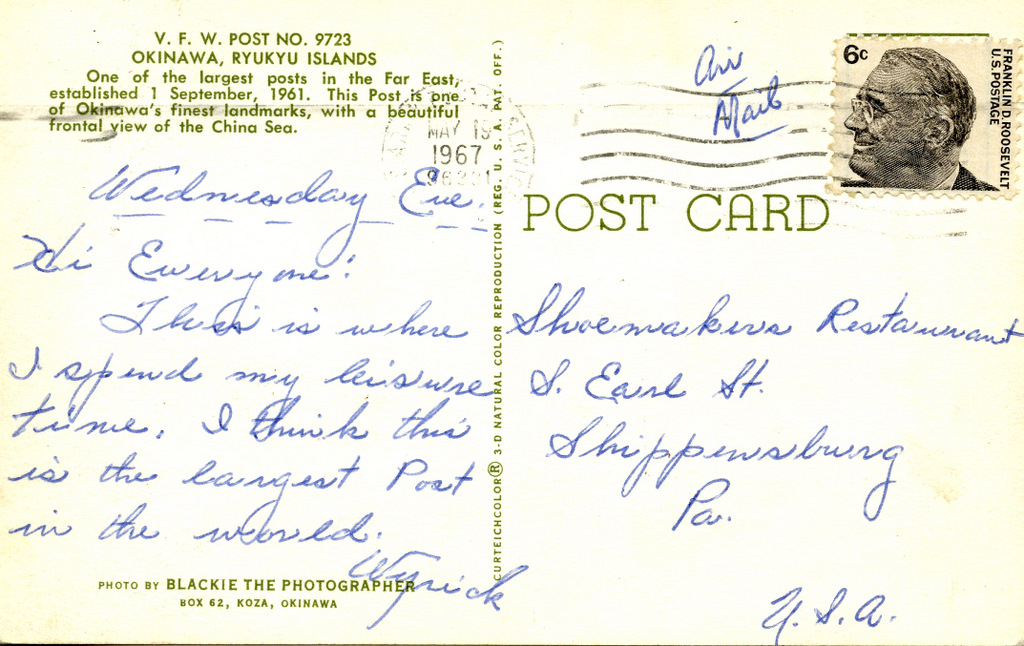 V. F. W. POST NO. 9723
OKINAWA, RYUKYU ISLANDS
One of the largest posts in the Far East,
established 1 September, 1961. This Post is one
of Okinawa's finest landmarks, with a beautiful
frontal view of the China Sea.
MAY 19
1967
Wednesday Eve.
Hi Everyone!
This is where
I spend my leisure
time. I think this
is the largest Post
in the world.
Wyrick
PHOTO BY BLACKIE THE PHOTOGRAPHER
BOX 62, KOZA, OKINAWA
CURTEICHCOLOR® 3-D NATURAL COLOR REPRODUCTION (REG. U. S. A. PAT. OFF.)
Air
Mail
6c
FRANKLIN D. ROOSEVELT
U.S. POSTAGE
POST CARD
Shoemakers Restaurant
S. Earl St.
Shippensburg
Pa.
U.S.A.